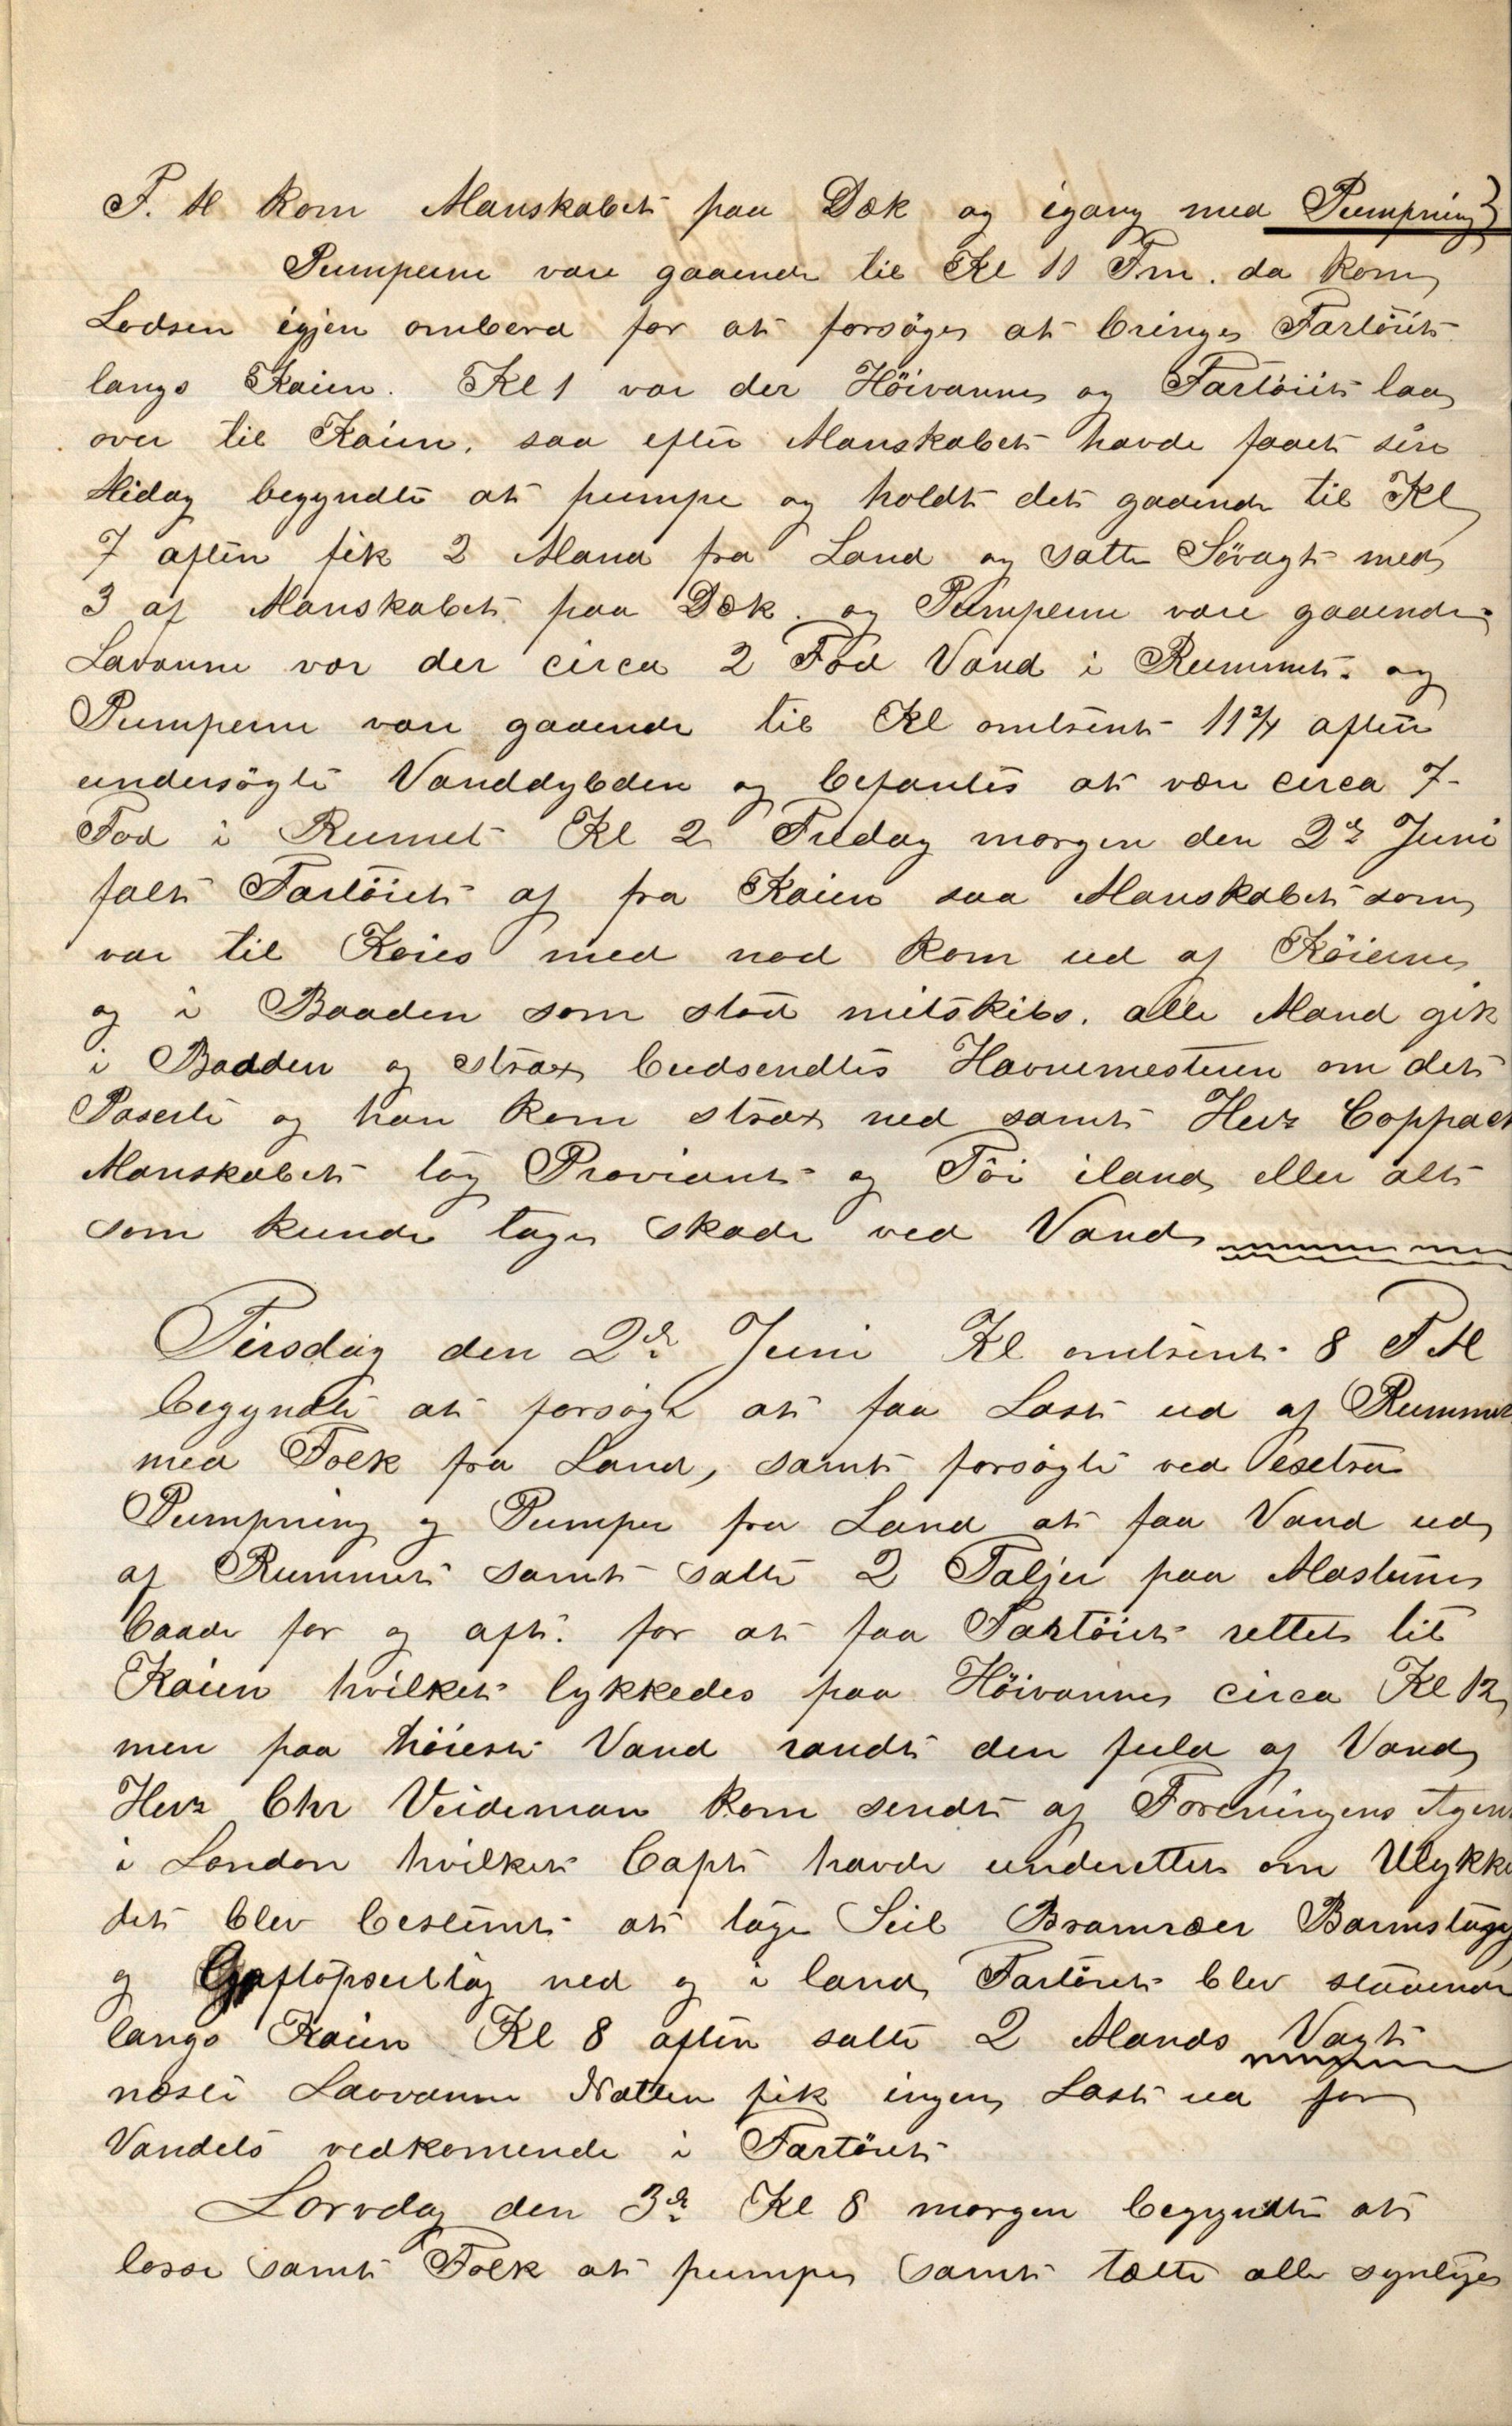 F. M kom Manskabet paa Dæk og igang med Pumpning
Pumperne vare gaaende til Kl 11 Fm. da kom
Lodsen igjen ombord for at forsøge at bringe Fartöiet
langs Kaien. Kl 1 var der Höivanne og Fartöiet laa
over til Kaien, saa efter Manskabet havde faaet sin
Midag begyndte at pumpe og holdt det gaaende til Kl
7 aften fik 2 Mand fra Land og satte Sövagt med
3 af Manskabet paa Dæk. og Pumperne vare gaaende
Lavanne var der circa 2 Fod Vand i Rummet. og
Pumperne vare gaaende til Kl omtrent 11 3/4 aften
undersögte Vanddybden og befantes at være circa 7
Fod i Rumet Kl 2 Fredag morgen den 2de Juni
falt Fartöiet af fra Kaien saa Manskabet som
var til Køies med nød kom ud af Köierne
og i Baaden som stod mitskibs. alle Mand gik
i Baaden og strax budsendtes Havnemesteren om det
Paserte og han kom strax ned samt Herr Coppack
Manskabet tog Proviant og Töi iland eller alt
som kunde tage skade ved Vand
Firsdag den 2de Juni Kl omtrent 8 F M
begyndte at forsøge at faa Last ud af Rummet
med Folk fra Land, samt forsögte ved exetra
Pumpning og Pumper fra Land at faa Vand ud
af Rummet samt satte 2 Taljer paa Masterne
baade for og aft. for at faa Fartöiet rettet til
Kaien hvilket lykkedes paa Höivanne circa Kl 12
men paa höieste Vand randt den fuld af Vand
Herr Chr Veideman kom sendt af Foreningens Agent
i London hvilket Capt havde underettet om Ulykke
det blev bestemt at tage Seil Bramræer Barmstæge
og Gaftopseiltøg ned og i land, Fartöiet blev staaende
langs Kaien Kl 8 aften satte 2 Mands Vagt
næste Lavvanne Natten fik ingen Last ud for
Vandets vedkomende i Fartöiet
Lørvdag den 3de Kl 8 morgen begyndte at
losse samt Folk at pumpe samt tætte alle synlige